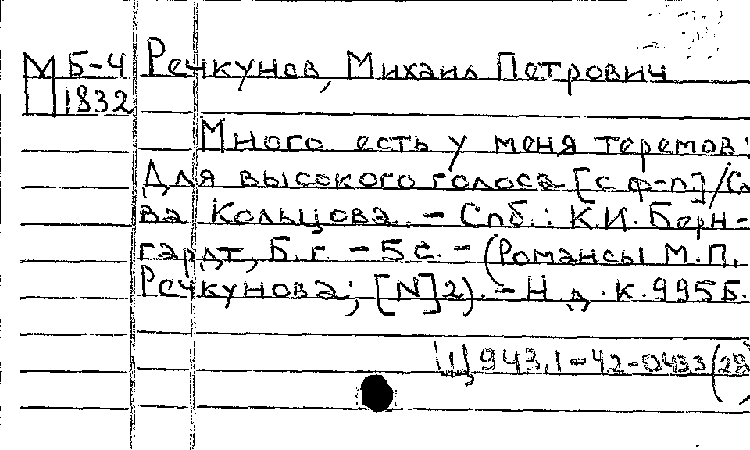 М Б-4 Речкунов, Михаил Петрович
1832
Много есть у меня теремов:
Для высокого голоса [с ф-п] / Сл
ва Кольцова. - Спб.: К.И. Берн-
гардт, Б.г. - 5 с. - (Романсы М.П.
Речкунова; [N] 2). - Н.д. К. 995Б.
Щ 943.1-42-0433 (28